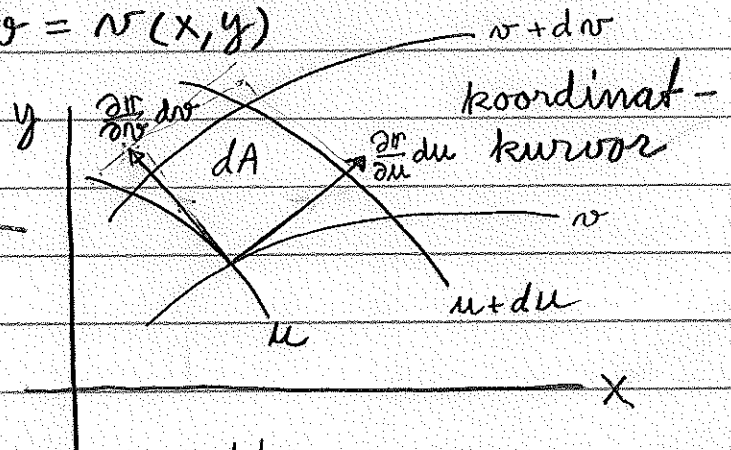 = v(x,y)
v+dv
koordinat-
kurvor
y
∂𝐫/∂v dv
dA
∂𝐫/∂u du
v
u+du
u
x